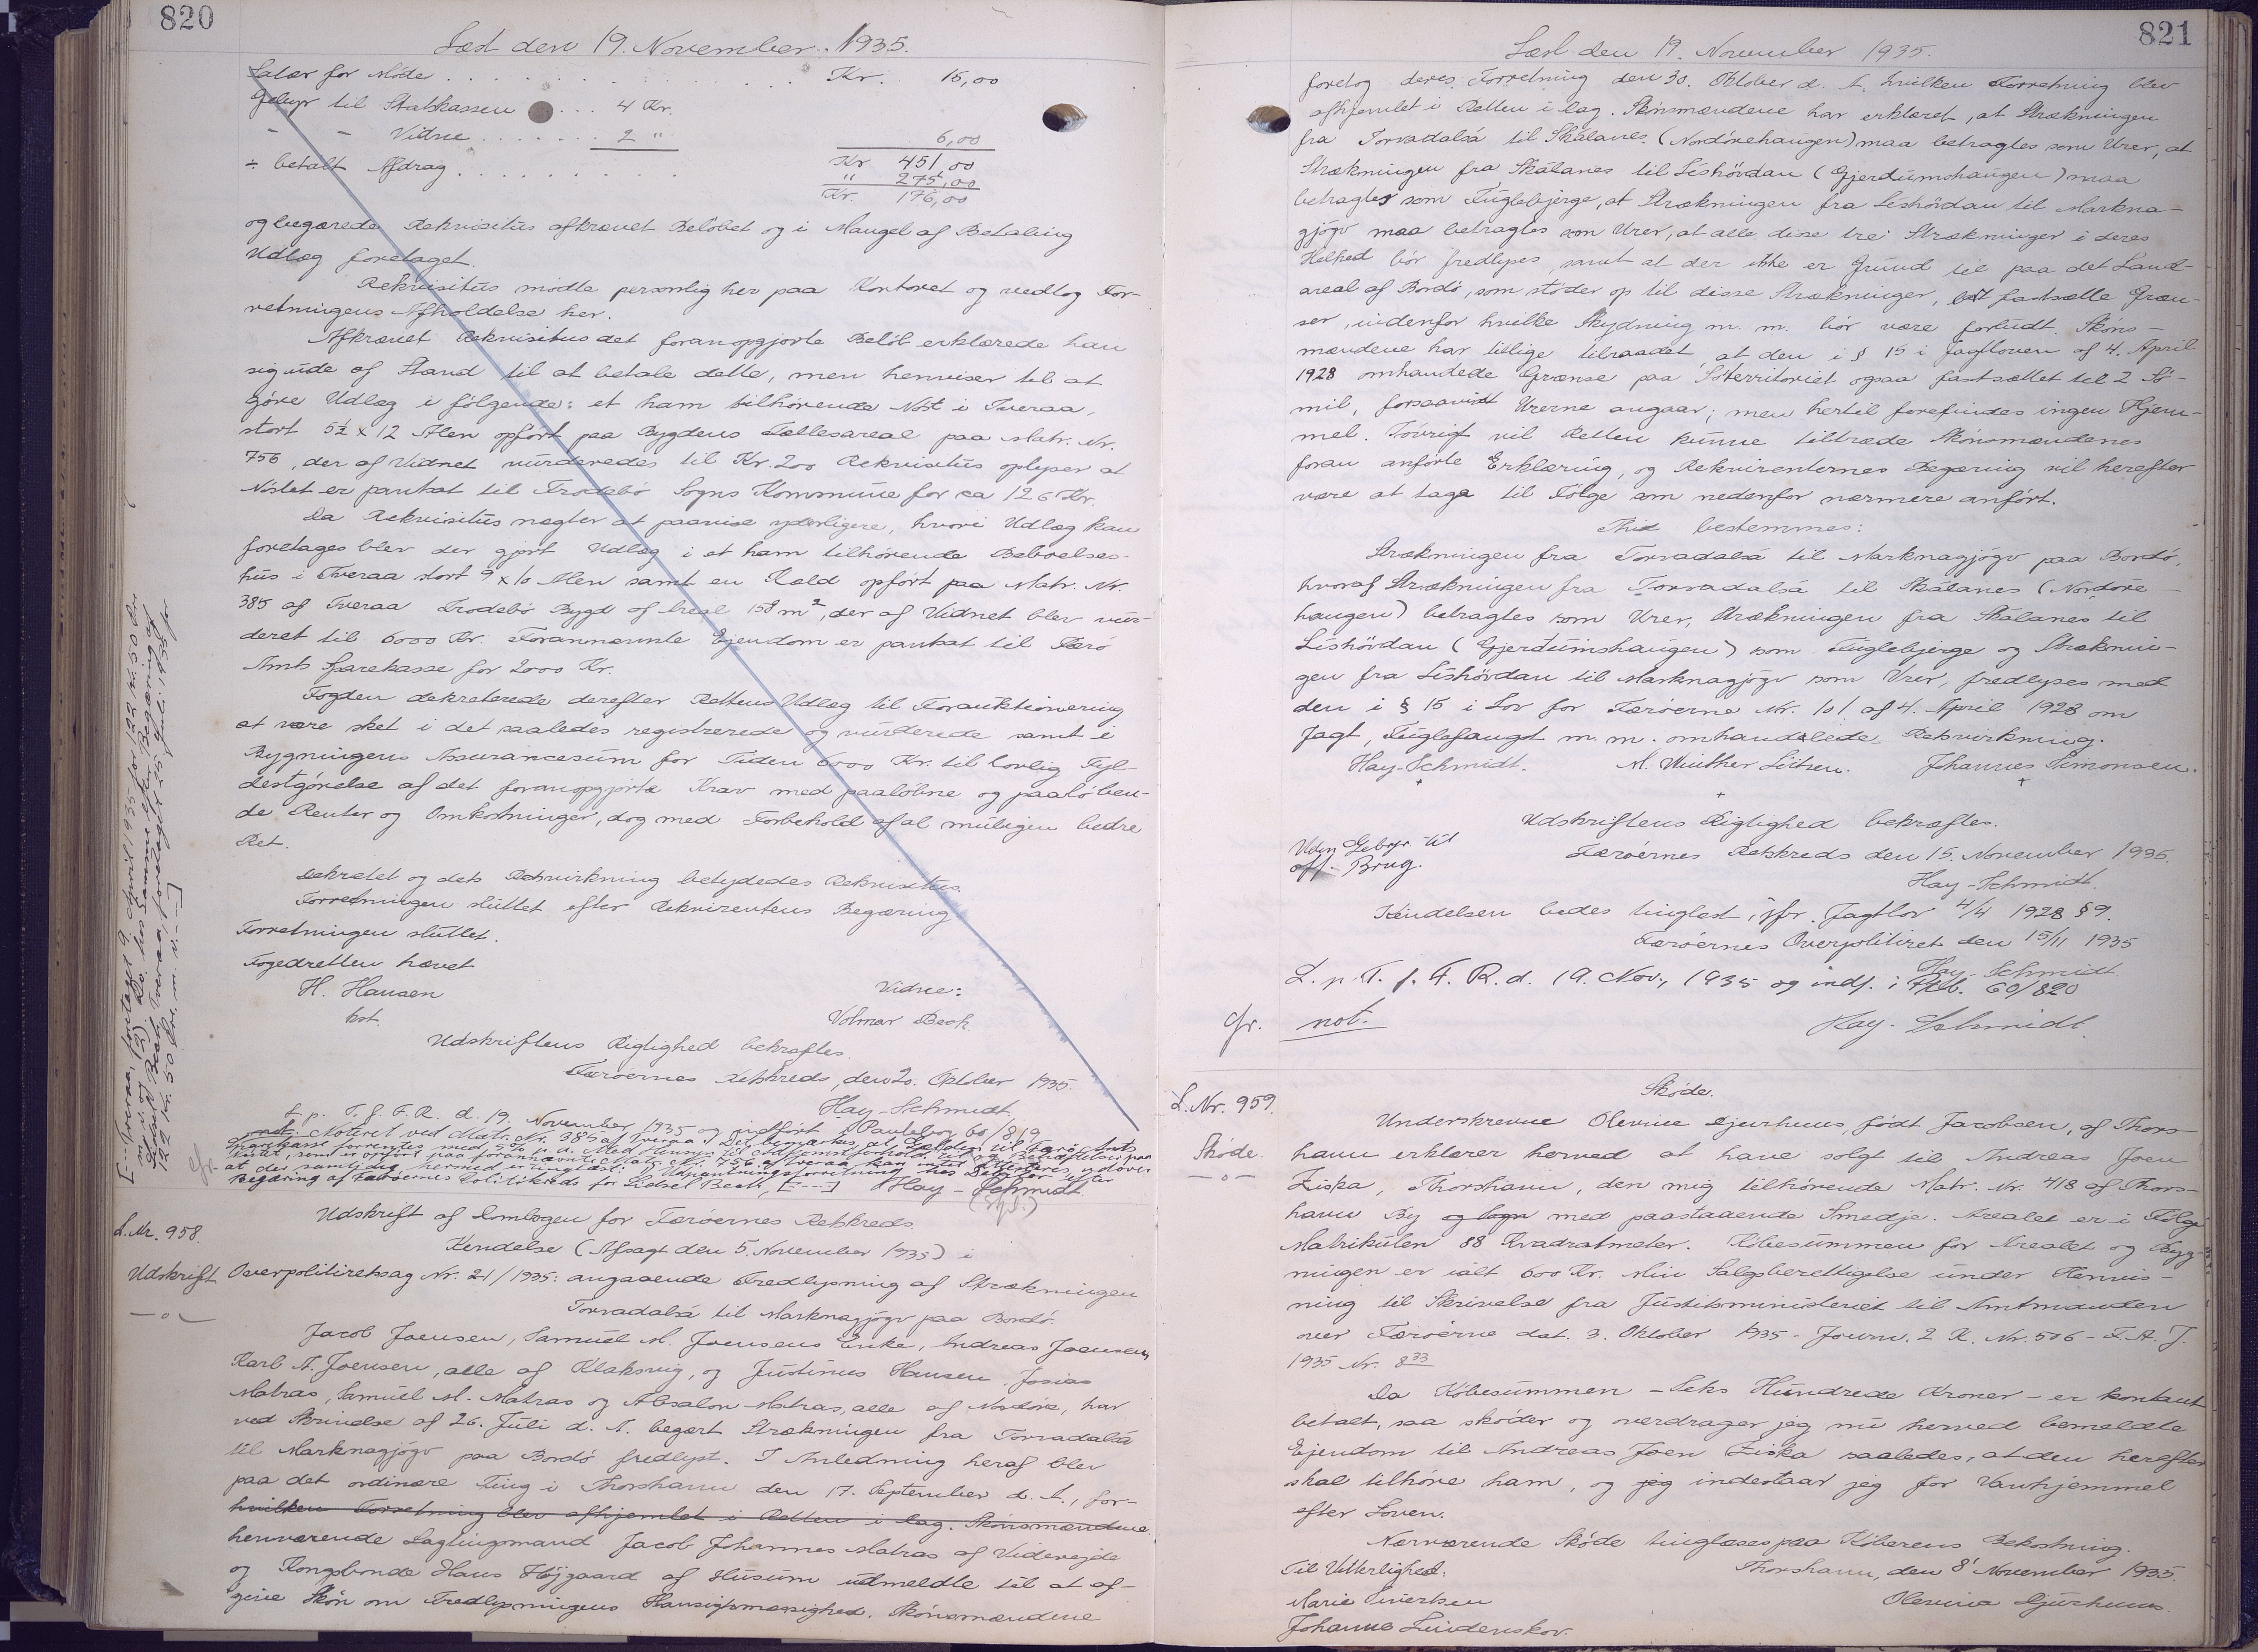 820
Læst den 19. November. 1935.
Salær for Møde . . . . . . . . . Kr. 15,00
Gebyr til Statskassen . . . 4 Kr.
- - Vidne . . . . . . . 2 " 6,00
Kr 451,00
÷ betalt Afdrag . . . . . . . . . . " 275,00
Kr. 176,00
og begærede Rekvisitus afkrævet Beløbet og i Mangel af Betaling
Udlæg foretaget.
Rekvisitus mødte personlig her paa Kontoret og vedtog For-
retningens Afholdelse her.
Afkrævet Rekvisitus det foranopgjorte Beløb erklærede han
sig ude af Stand til at betale dette, men henviser til at
gøre Udlæg i følgende: et ham tilhørende Nøst i Tveraa,
stort 5½ x 12 Alen opført paa Bygdens Fællesareal paa Matr. Nr.
756, der af Vidnet vurderedes til Kr. 200 Rekvisitus oplyser at
Nøstet er pantsat til Frodebø Sogns Kommune for ca 126 Kr.
Da Rekvisitus nægter at paavise yderligere, hvori Udlæg kan
foretages blev der gjort Udlæg i et ham tilhørende Beboelses-
hus i Tveraa stort 9 x 10 Alen samt en Kæld opført paa Matr. Nr.
385 af Tveraa Frodebø Bygd af Areal 158 m², der af Vidnet blev vur-
deret til 6000 Kr. Forannævnte Ejendom er pantsat til Færø
Amts Sparekasse for 2000 Kr.
Fogden dekreterede derefter Rettens Udlæg til Forauktionering
at være sket i det saaledes registrerede og vurderede samt i
Bygningens Assurancesum for Tiden 6000 Kr. til lovlig Fyl-
destgørelse af det foranopgjorte Krav med paaløbne og paaløben-
de Renter og Omkostninger, dog med Forbehold af al muligen bedre
Ret.
Dekretet og dets Retsvirkning betydedes Rekvisitus.
Forretningen sluttet efter Rekvirentens Begæring
Forretningen sluttet.
Fogedretten hævet
H. Hansen Vidne:
kst. Volmar Beck
Udskriftens Rigtighed bekræftes.
Færøernes Retskreds, den 20. Oktober 1935.
Hay-Schmidt.
L. p. T. f. F. R. d. 19. November 1935 og indført i Pantebog 60/819
not. Noteret ved Matr. Nr. 385 af Tveraa. Det bemærkes, at Gælden til Færø Amts
Begæring af Færøernes Politikreds for Lidsel Beck, [---] Hay-Schmidt
L. Nr. 958.
Udskrift
Udskrift af Dombogen for Færøernes Retskreds.
Kendelse (Afsagt den 5. November 1935) i
Overpolitiretssag Nr. 21/1935: angaaende Fredlysning af Strækningen
Torvadalsá til Marknagjógv paa Bordö.
Jacob Joensen, Samuel M. Joensens Enke, Andreas Joensen,
Karl A. Joensen, alle af Klaksvig, og Justinus Hansen, Josias
Matras, Samuel M. Matras og Absalon Matras, alle af Nordöre, har
ved Skrivelse af 26. Juli d. A. begært Strækningen fra Torvadalsá
til Marknagjógv paa Bordö fredlyst. I Anledning heraf blev
paa det ordinære Ting i Thorshavn den 17. September d. A., for-
hvilken Forretning blev afhjemlet i Retten i Dag. Skönsmændene
henværende Lagtingsmand Jacob Johannes Matras af Viderejde
og Kongsbonde Hans Højgaard af Husum udmeldte til at af-
give Skön om Fredlysningens Hensigtsmæssighed. Skönsmændene
821
Læst den 19. November 1935.
foretog deres Forretning den 30. Oktober d. A. hvilken Forretning blev
afhjemlet i Retten i Dag. Skönsmændene har erklæret, at Strækningen
fra Torvadalsá til Skálanes (Nordörehaugen) maa betragtes som Urer, at
Strækningen fra Skálanes til Lishövdan (Gjerdumshaugen) maa
betragtes som Fuglebjerge, at Strækningen fra Lishövdan til Markna-
gjógv maa betragtes som Urer, at alle disse tre Strækninger i deres
Helhed bör fredlyses, samt at der ikke er Grund til paa det Land-
areal af Bordö, som stöder op til disse Strækninger, at fastsætte Græn-
ser, indenfor hvilke Skydning m. m. bör være forbudt. Sköns-
mændene har tillige tilraadet, at den i § 15 i Jagtloven af 4. April
1928 omhandlede Grænse paa Söterritoriet ogsaa fastsættes til 2 Sö-
mil, forsaavidt Urerne angaar; men hertil forefindes ingen Hjem-
mel. Iövrigt vil Retten kunne tiltræde Skönsmændenes
foran anförte Erklæring, og Rekvirenternes Begæring vil herefter
være at tage til Fölge som nedenfor nærmere anfört.
Thi bestemmes:
Strækningen fra Torvadalsá til Marknagjógv paa Bordö,
hvoraf Strækningen fra Torvadalsá til Skálanes (Nordöre-
haugen) betragtes som Urer, Strækningen fra Skálanes til
Lishövdan (Gjerdumshaugen) som Fuglebjerge og Stræknin-
gen fra Lishövdan til Marknagjógv som Urer, fredlyses med
den i § 15 i Lov for Færöerne Nr. 101 af 4. April 1928 om
Jagt, Fuglefangst m. m. omhandlede Retsvirkning.
Hay-Schmidt. M. Winther Lützen. Johannes Simonsen.
Udskriftens Rigtighed bekræftes.
Uden Gebyr til
off. Brug.
Færöernes Retskreds den 15. November 1935.
Hay-Schmidt.
Kendelsen bedes tinglæst, jfr. Jagtlov 4/4 1928 § 9.
Færöernes Overpolitiret den 15/11 1935
Hay-Schmidt.
L. p. T. f. F. R. d. 19. Nov., 1935 og indf. i Ptb. 60/820
Gr. not. Hay-Schmidt.
L. Nr. 959.
Sköde.
Sköde.
Underskrevne Olevine Djurhuus, född Jacobsen, af Thors-
havn erklærer herved at have solgt til Andreas Joen
Ziska, Thorshavn, den mig tilhörende Matr. Nr. 418 af Thors-
havn By og Sogn med paastaaende Smedje. Arealet er i Fölge
Matrikulen 88 Kvadratmeter. Köbesummen for Arealet og Byg-
ningen er ialt 600 Kr. Min Salgsberettigelse under Henvis-
ning til Skrivelse fra Justitsministeriet til Amtmanden
over Færöerne dat. 3. Oktober 1935 - Journ. 2 K. Nr. 506 - F. A. J.
1935 Nr. 833
Da Köbesummen - Seks Hundrede Kroner - er kontant
betalt, saa sköder og overdrager jeg nu herved bemeldte
Ejendom til Andreas Joen Ziska saaledes, at den herefter
skal tilhöre ham, og jeg indestaar jeg for Vanhjemmel
efter Loven.
Nærværende Sköde tinglæses paa Köberens Bekostning.
Til Vitterlighed: Thorshavn, den 8' November 1935.
Marie Sivertsen Olevina Djurhuus.
Johanne Lindenskov.